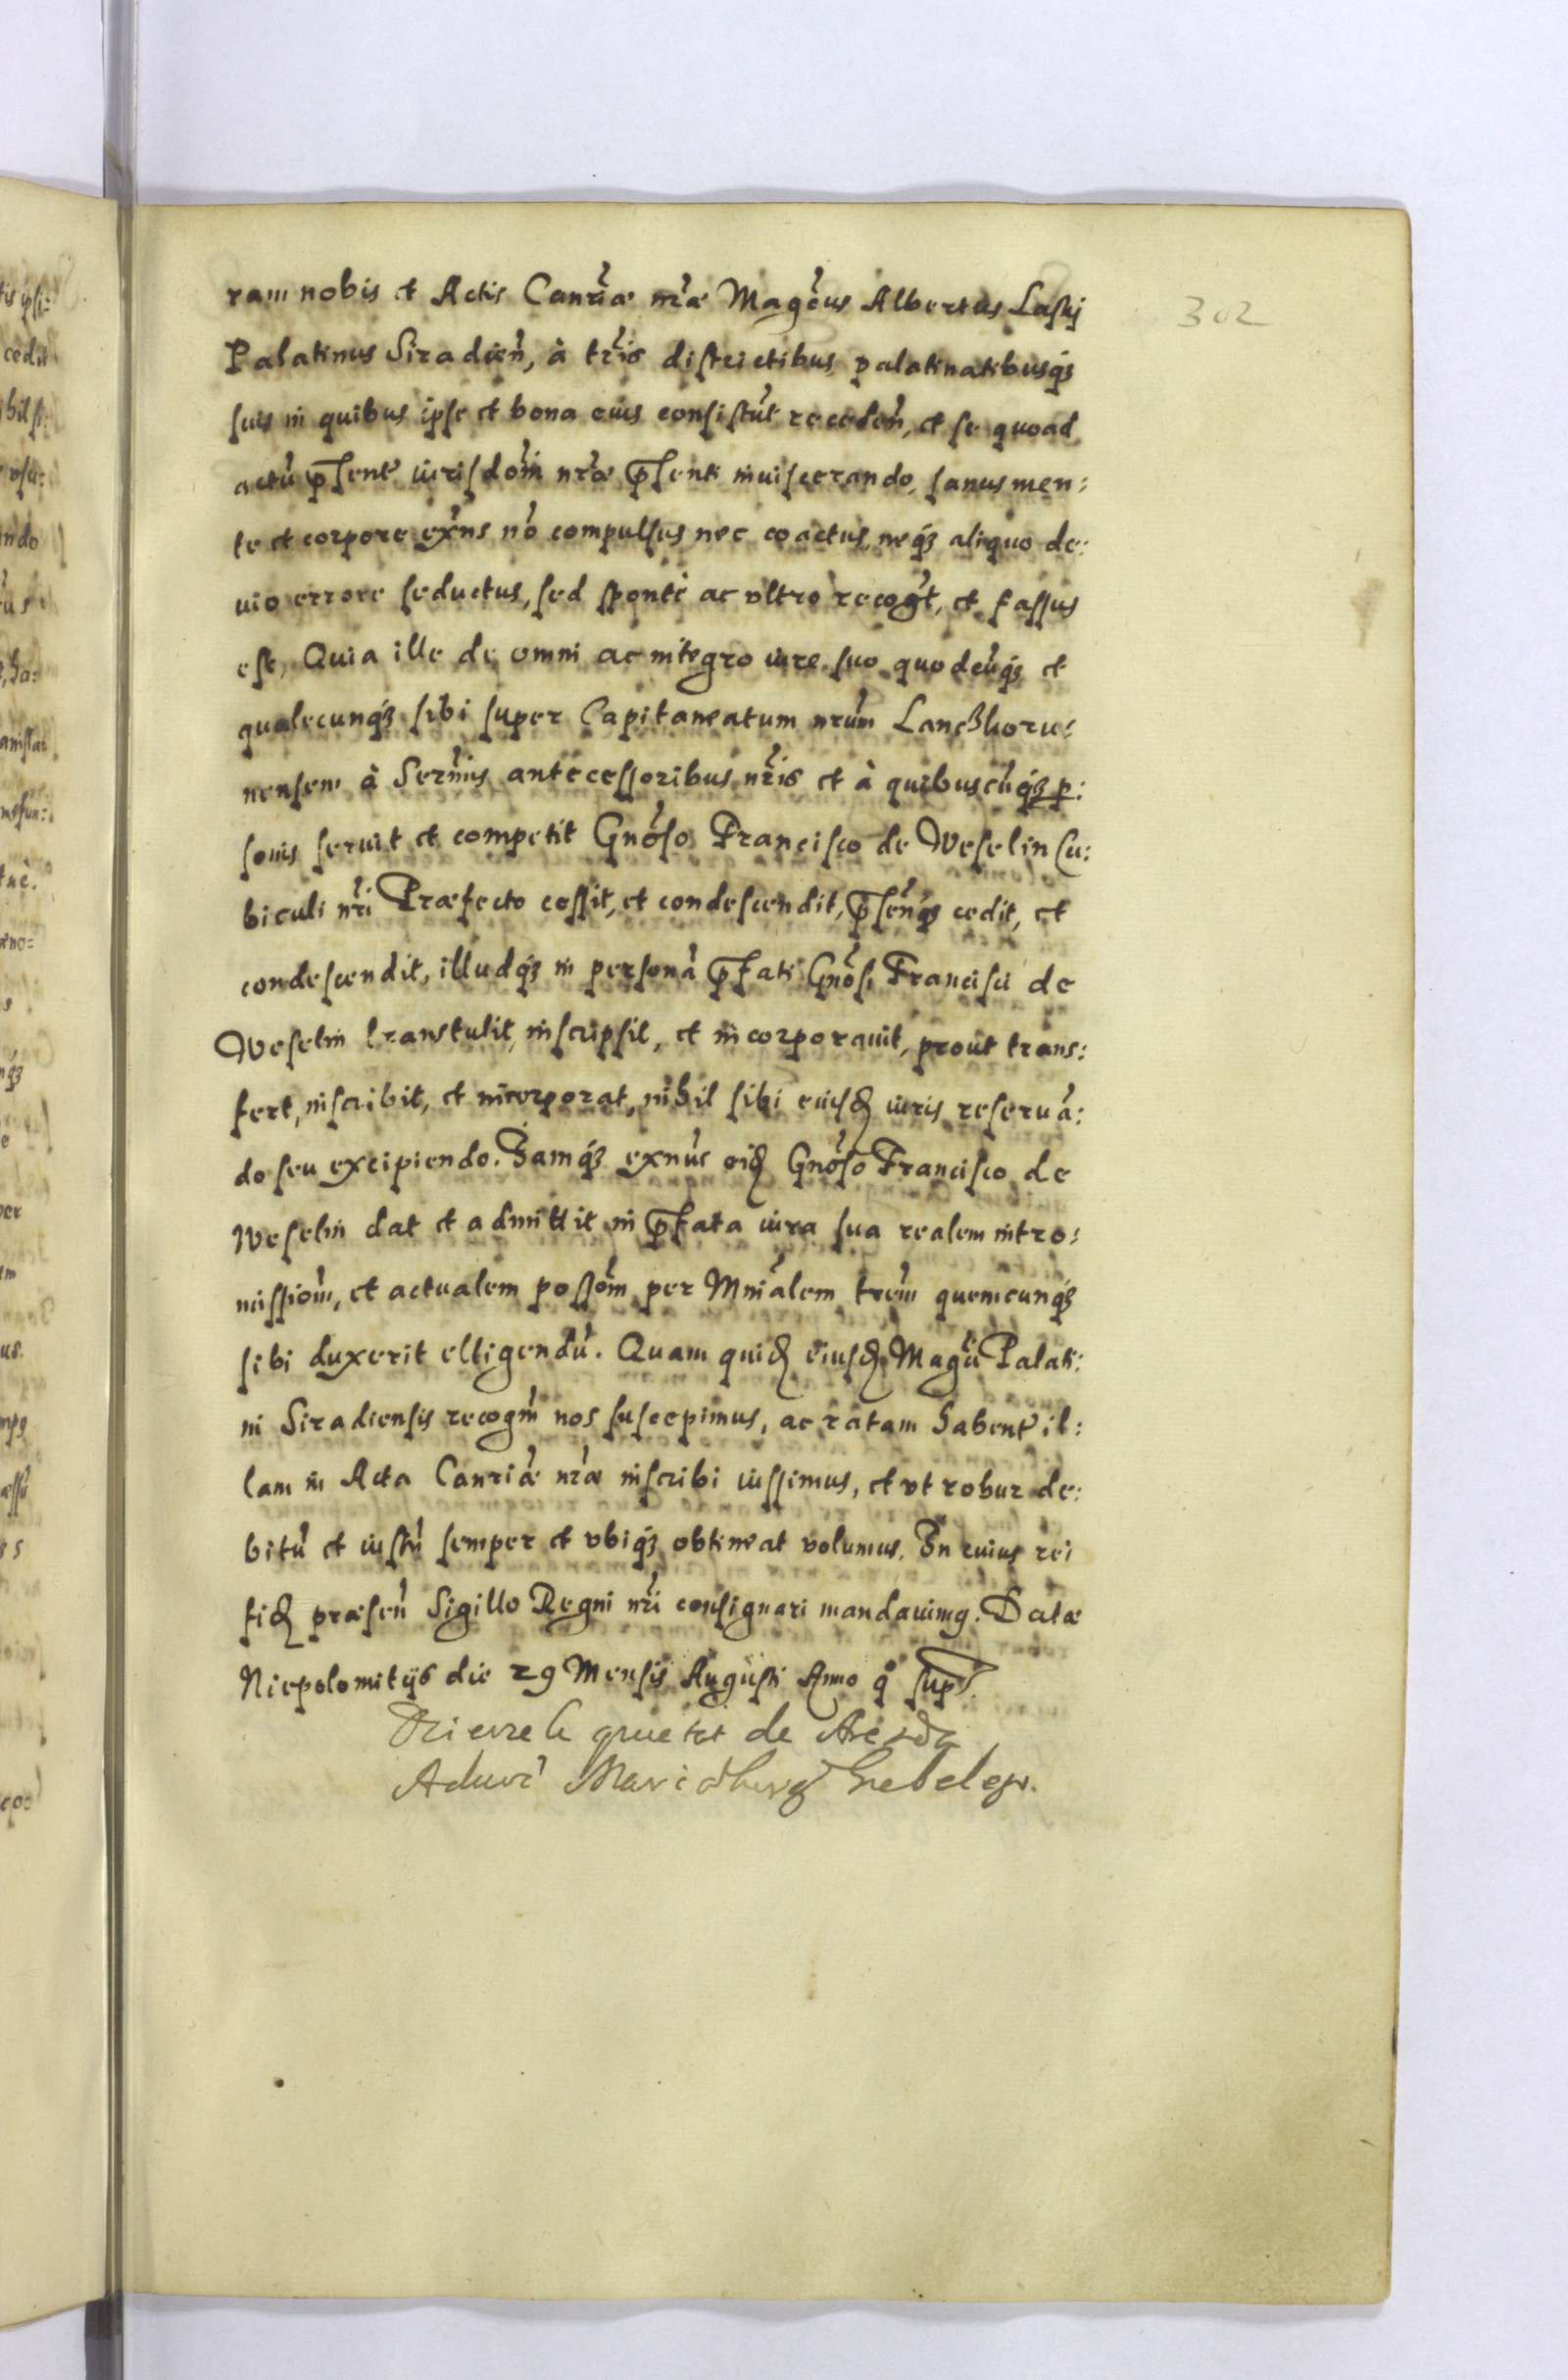 302
ram nobis et Actis Canr̃iæ nr̃æ Magc̃us Albertus Laskj
Palatinus Siradieñ, à tr̃is districtibus palatinatibusq́;
suis in quibus ipse et bona eius consistũt recedeñ, et se quoad
actũ p̃sent̃ iurisdõni nr̃æ p̃senti inuiscerando, sanus men:
te et corpore exñs nõ compulsus nec coactus, neq́; aliquo de:
uio errore seductus, sed spontè ac vltro recogt̃, et fassus
est, Quia ille de omni ac integro iure suo quodcũq́; et
qualecunq́; sibi super Capitaneatum nr̃um Lanczkoru:
nensem à Serm̃is antecessoribus nr̃is et à quibuscũq́; p̱:
sonis seruit et competit Gnõso Francisco de Weselin Cu:
biculi nr̃i Præfecto cessit, et condescendit, p̃senq̃; cedit, et
condescendit, illudq́; in personã p̃fati Gnõsi Francisci de
Weselin transtulit, inscripsit, et incorporauit, prout trans:
fert, inscribit, et incorporat, nihil sibi eiusd̃ iuris reseruã:
do seu excipiendo. Iamq́; exnũc eid̃ Gnõso Francisco de
Weselin dat et admittit in p̃fata iura sua realem intro:
missiom̃, et actualem possõm per Mnr̃alem trẽm quemcunq́;
sibi duxerit elligendũ. Quam quid̃ eiusd̃ Magc̃i Palati:
ni Siradiensis recogm̃ nos suscepimus, ac ratam habent̃ il:
lam in Acta Canr̃iæ nr̃æ inscribi iussimus, et vt robur de:
bitũ et iustũ semper et vbiq́; obtineat volumus. In cuius rei
fid̃ præseñ Sigillo Regni nr̃i consignari mandauimꝰ. Datæ
Niepolomitijs die 29 Mensis Augusti Anno q̊ supr̃.
de